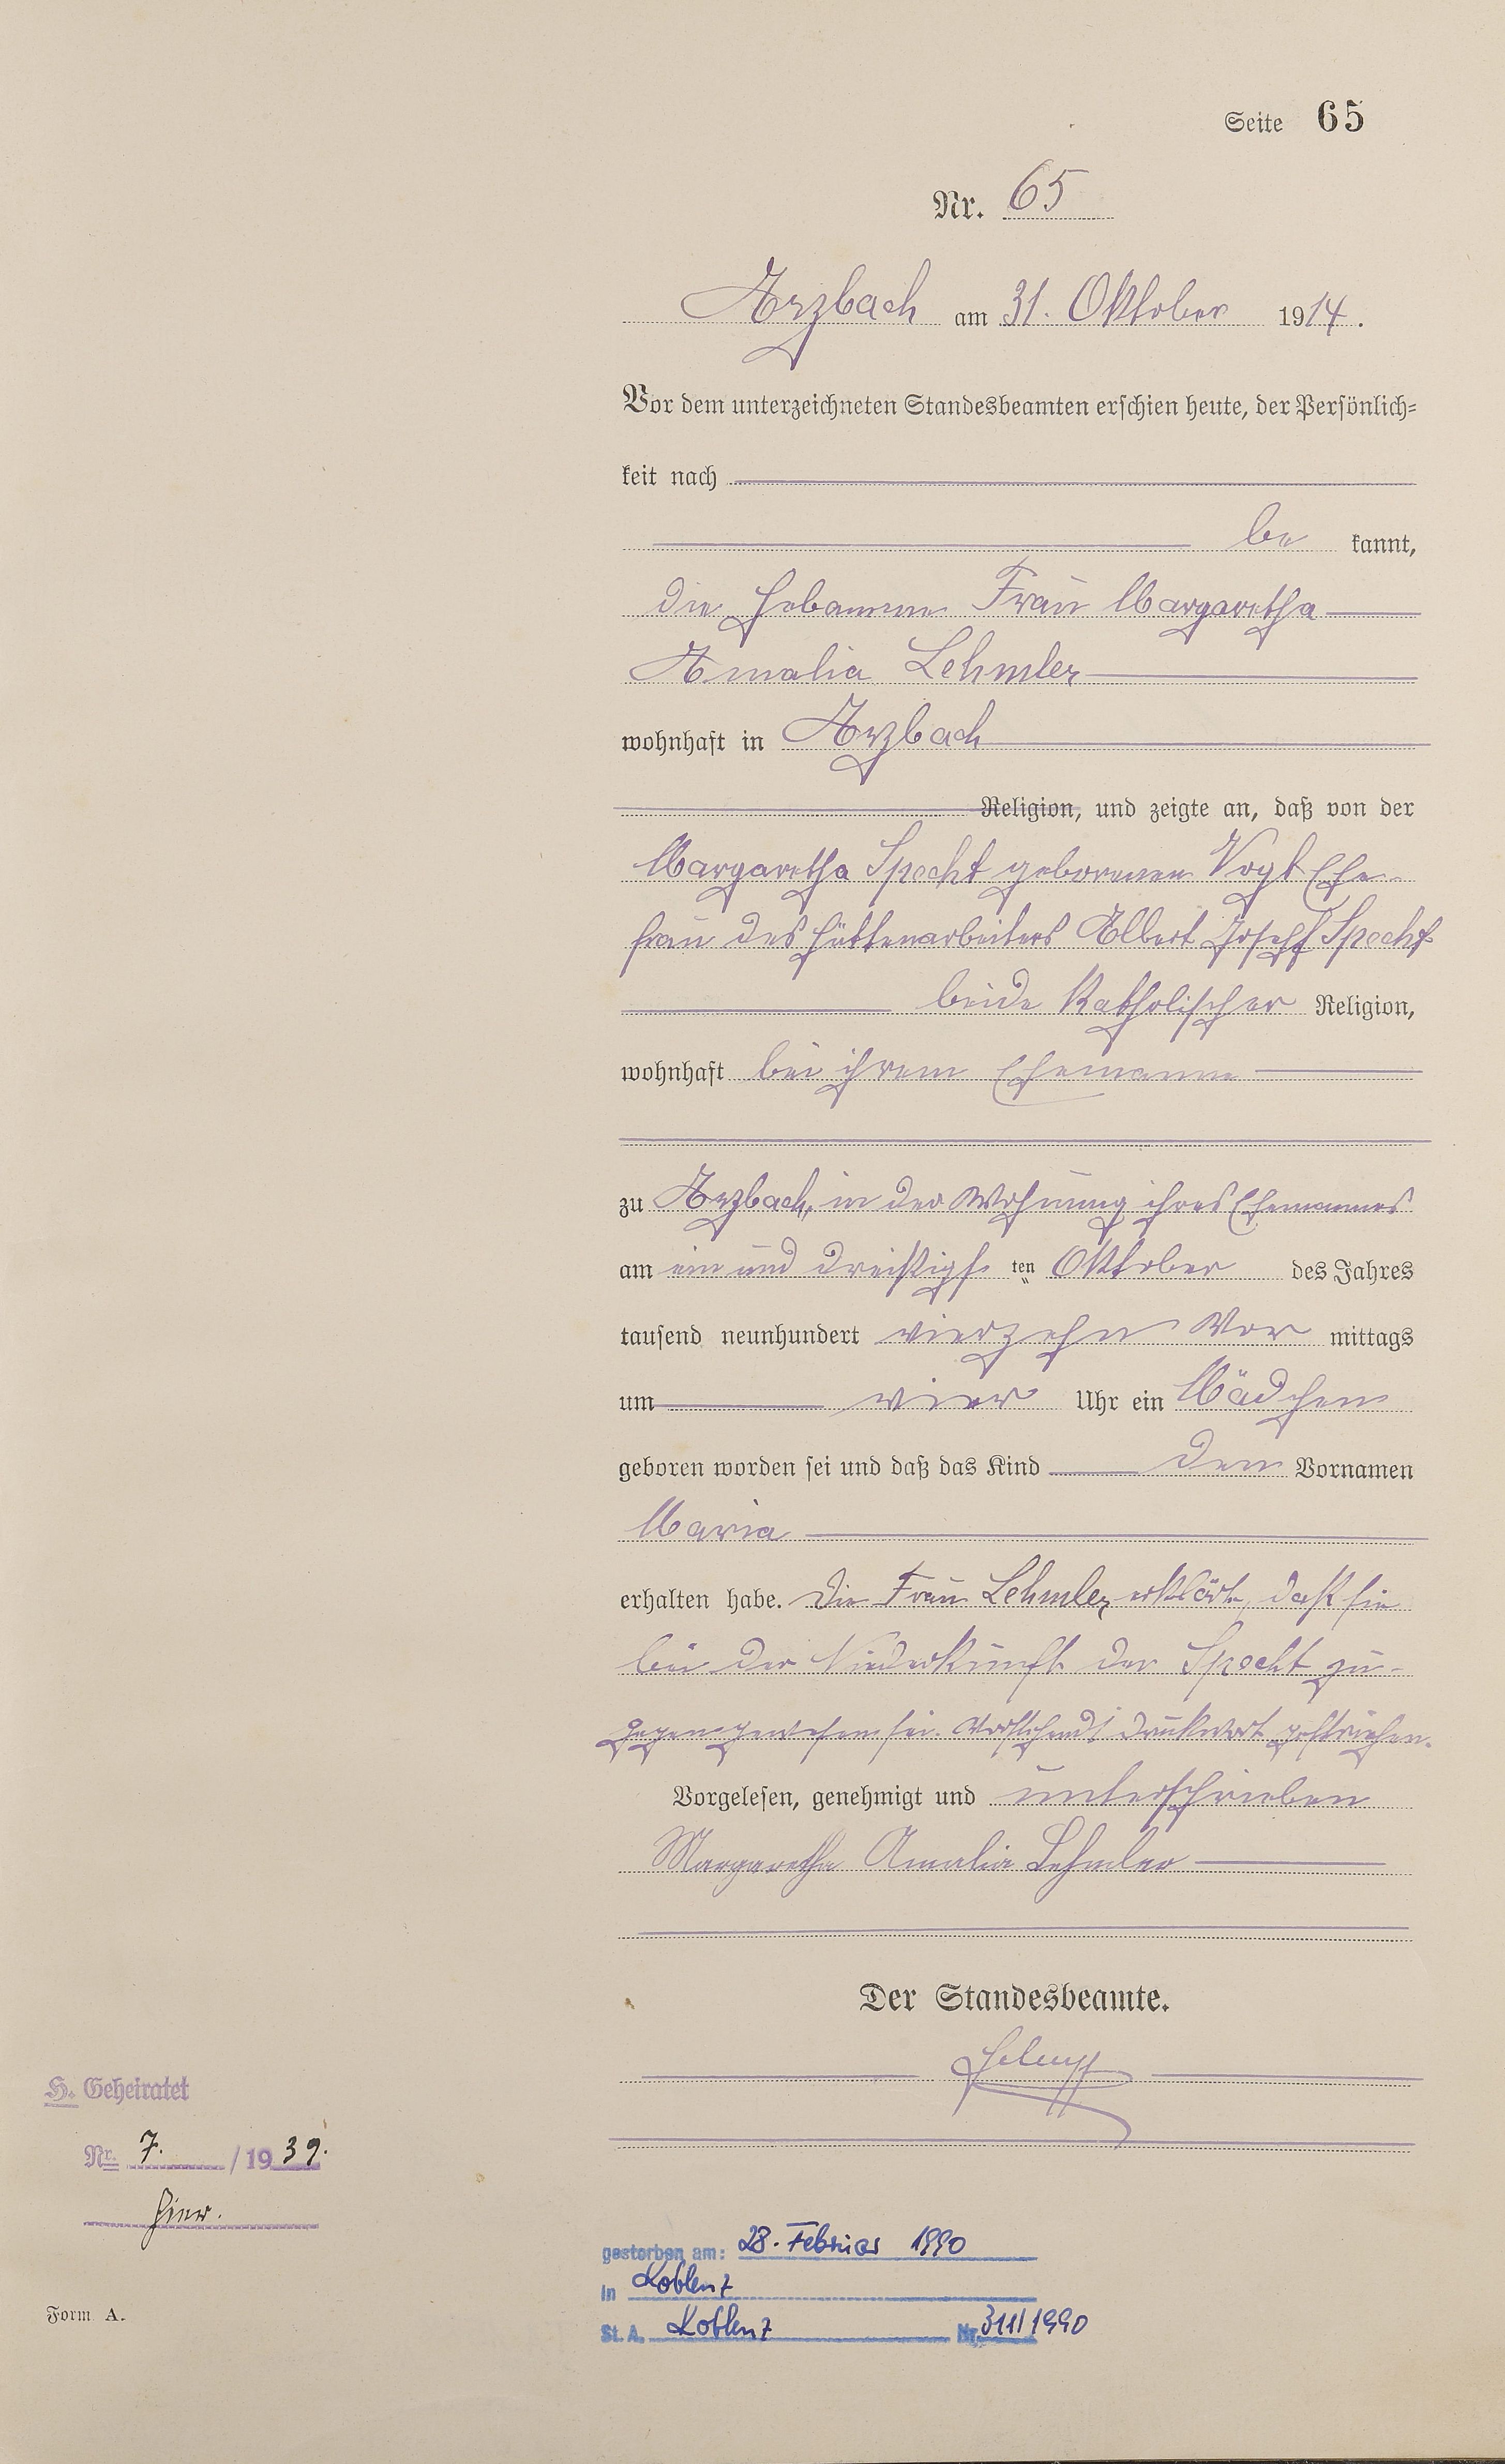 Seite 65
Nr. 65
Arzbach am 31. Oktober 1914.
Vor dem unterzeichneten Standesbeamten erschien heute, der Persönlich-
keit nach
be kannt,
die Hebamme Frau Margaretha
Amalia Lehmler
wohnhaft in Arzbach
Religion, und zeigte an, daß von der
Margaretha Specht geborenen Vogt Ehe-
frau des Hüttenarbeiters Albert Joseph Specht
beide Katholischer Religion,
wohnhaft bei ihrem Ehemanne
zu Arzbach, in der Wohnung ihres Ehemannes
am ein und dreißigsten Oktober des Jahres
tausend neunhundert vierzehn Vor mittags
um vier Uhr ein Mädchen
geboren worden sei und daß das Kind den Vornamen
Maria
erhalten habe. Die Frau Lehmler erklärte, daß sie
bei der Niederkunft der Specht zu-
gegen gewesen sei. Vorstehend 1 Druckwort gestrichen.
Vorgelesen, genehmigt und unterschrieben
Margaretha Amalia Lehmler
Der Standesbeamte.
H. Geheiratet
Nr. 7. / 1939.
hier.
gestorben am: 28. Februar 1990
in Koblenz
St. A. Koblenz Nr. 311/1990
Form A.